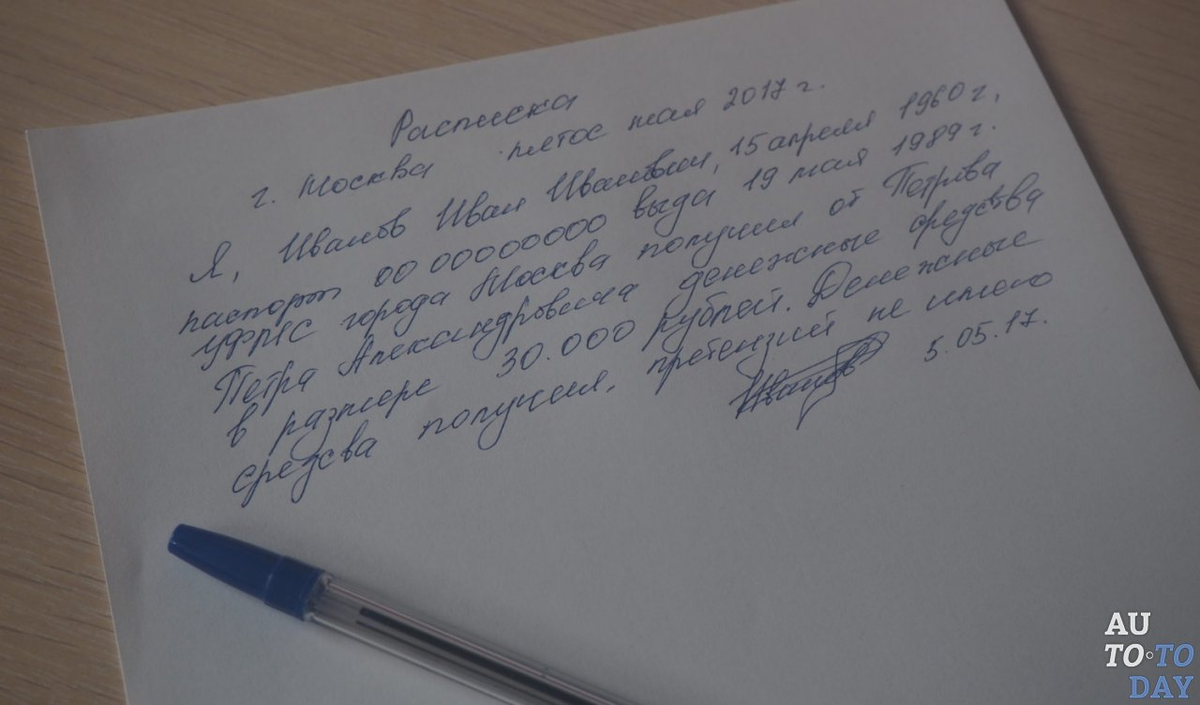 Расписка
г. Москва пятое мая 2017 г.
Я, Иванов Иван Иваныч, 15 апреля 1960 г,
паспорт 00 00000000 выда 19 мая 1989 г.
УФМС города Москва получил от Петрова
Петра Александровича денежные средства
в размере 30.000 рублей. Денежные
средсва получил, претензий не имею
Иванов 5.05.17.
AU
TO·TO
DAY